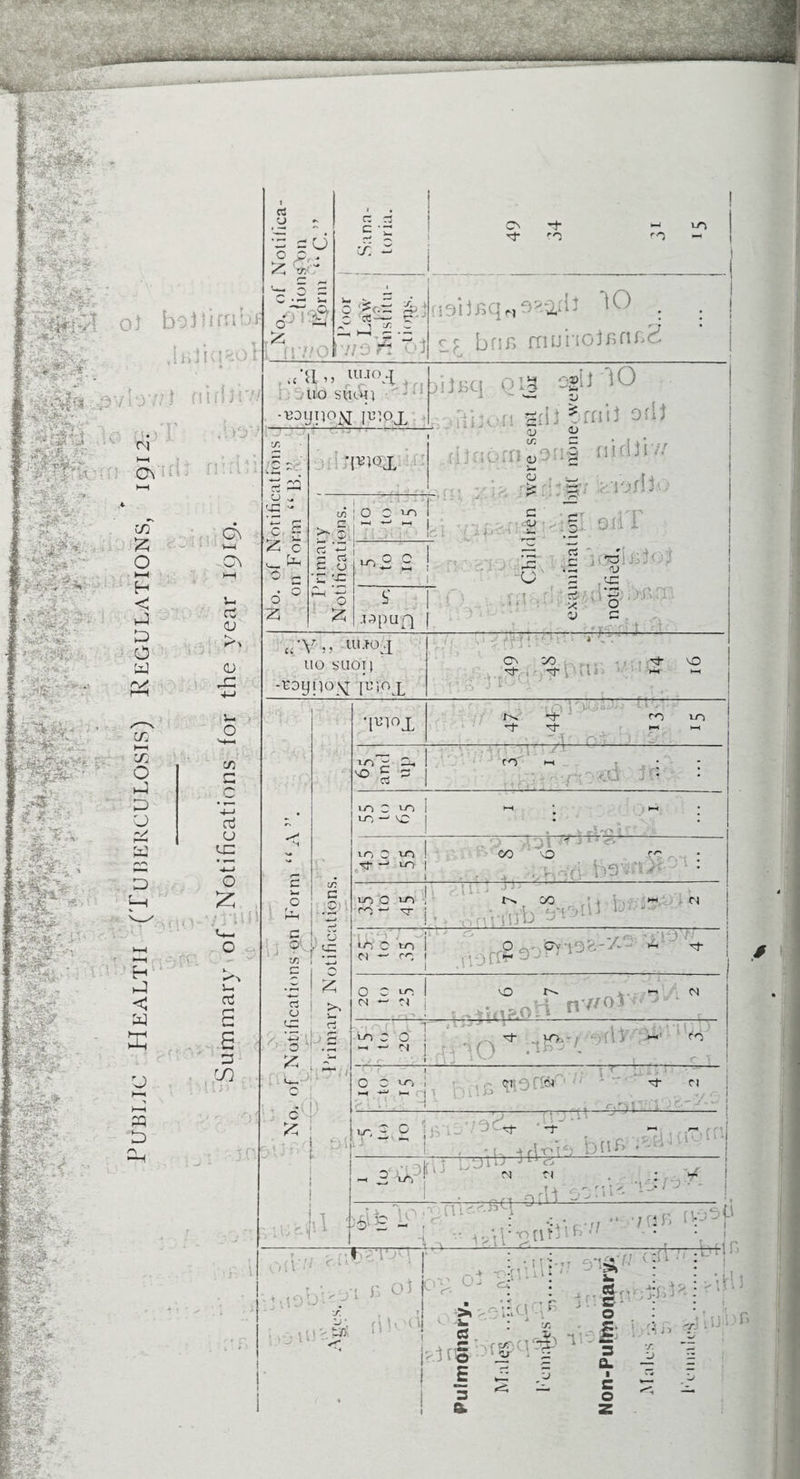 PUBLIC HEALTH (TUBERCULOSIS) REGULATIONS, 1912.
Summary of Notifications for the year 1919.
No. of Notifications on Form “A”.
Primary Notifications.
Total Notifications on Form “A.”
No. of Notifications on Form “B.”
Primary Notifications.
Total Notifications on Form “B.”
No. of Notifications on Form “C.”
Ages.
1 to 5
5 to 10
10 to 15
15 to 20
20 to 25
25 to 35
35 to 45
45 to 55
55 to 65
65 and up
Total.
Under 5
5 to 10
10 to 15
Total.
Poor Law Institutions.
Sanatoria.
Pulmonary.
Males ... 2 4 2 4 6 10 7 8 1 3 47 49 49
Females ... 2 4 2 5 7 9 8 6 ... 1 44 48 34
Non-Pulmonary.
Males ... ... 1 4 1 1 1 1 3 1 ... 13 14 31
Females ... 1 1 2 3 2 4 2 ... ... ... 15 16 15
Children were sent for examination but none were notified.